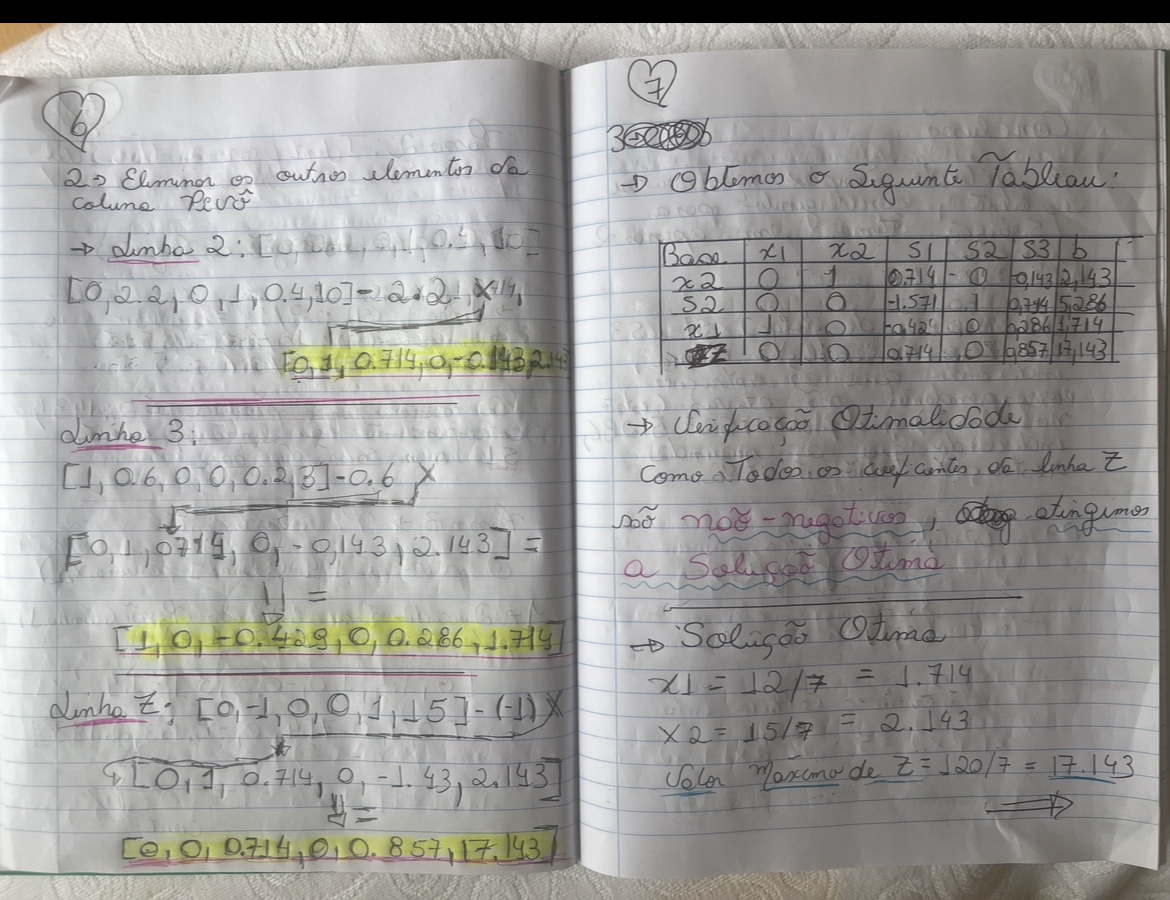 6
2⇒ Eliminar os outros elementos da
coluna Pevô
→ Linha 2:
[0, 2.2, 0, 1, 0.4, 10] - 2.2
[0, 1, 0.714, 0, -0.143, 2.143
Linha 3:
[1, 0.6, 0, 0, 0.2, 3] - 0.6 X
[0, 1, 0714, 0, -0,143, 2.143] =
=
[1, 0, -0.429, 0, 0.286, 1.714]
Linha Z: [0, -1, 0, 0, 1, 15] - (-1) X
[0, 1, 0.714, 0, -1.43, 2.143]
=
[0, 0, 0.714, 0, 0.857, 17.143]
7
→ Obtemos o Siguinte Tãbleau:
Base x1 x2 S1 S2 S3 b
x2 0 1 0,714 - 0 -0,143 2,143
S2 0 0 -1.571 1 0,714 5,286
x1 1 0 -0,424 0 0,286 1,714
Z 0 0 0,714 0 0,857 17,143
→ Verificação Otimalidade
Como Todos os coeficientes da linha Z
são não-negativos, atingimos
a Solução Otima
→ Solução Otima
x1 = 12/7 = 1.714
X2 = 15/7 = 2.143
Valor Maximo de Z = 120/7 = 17.143